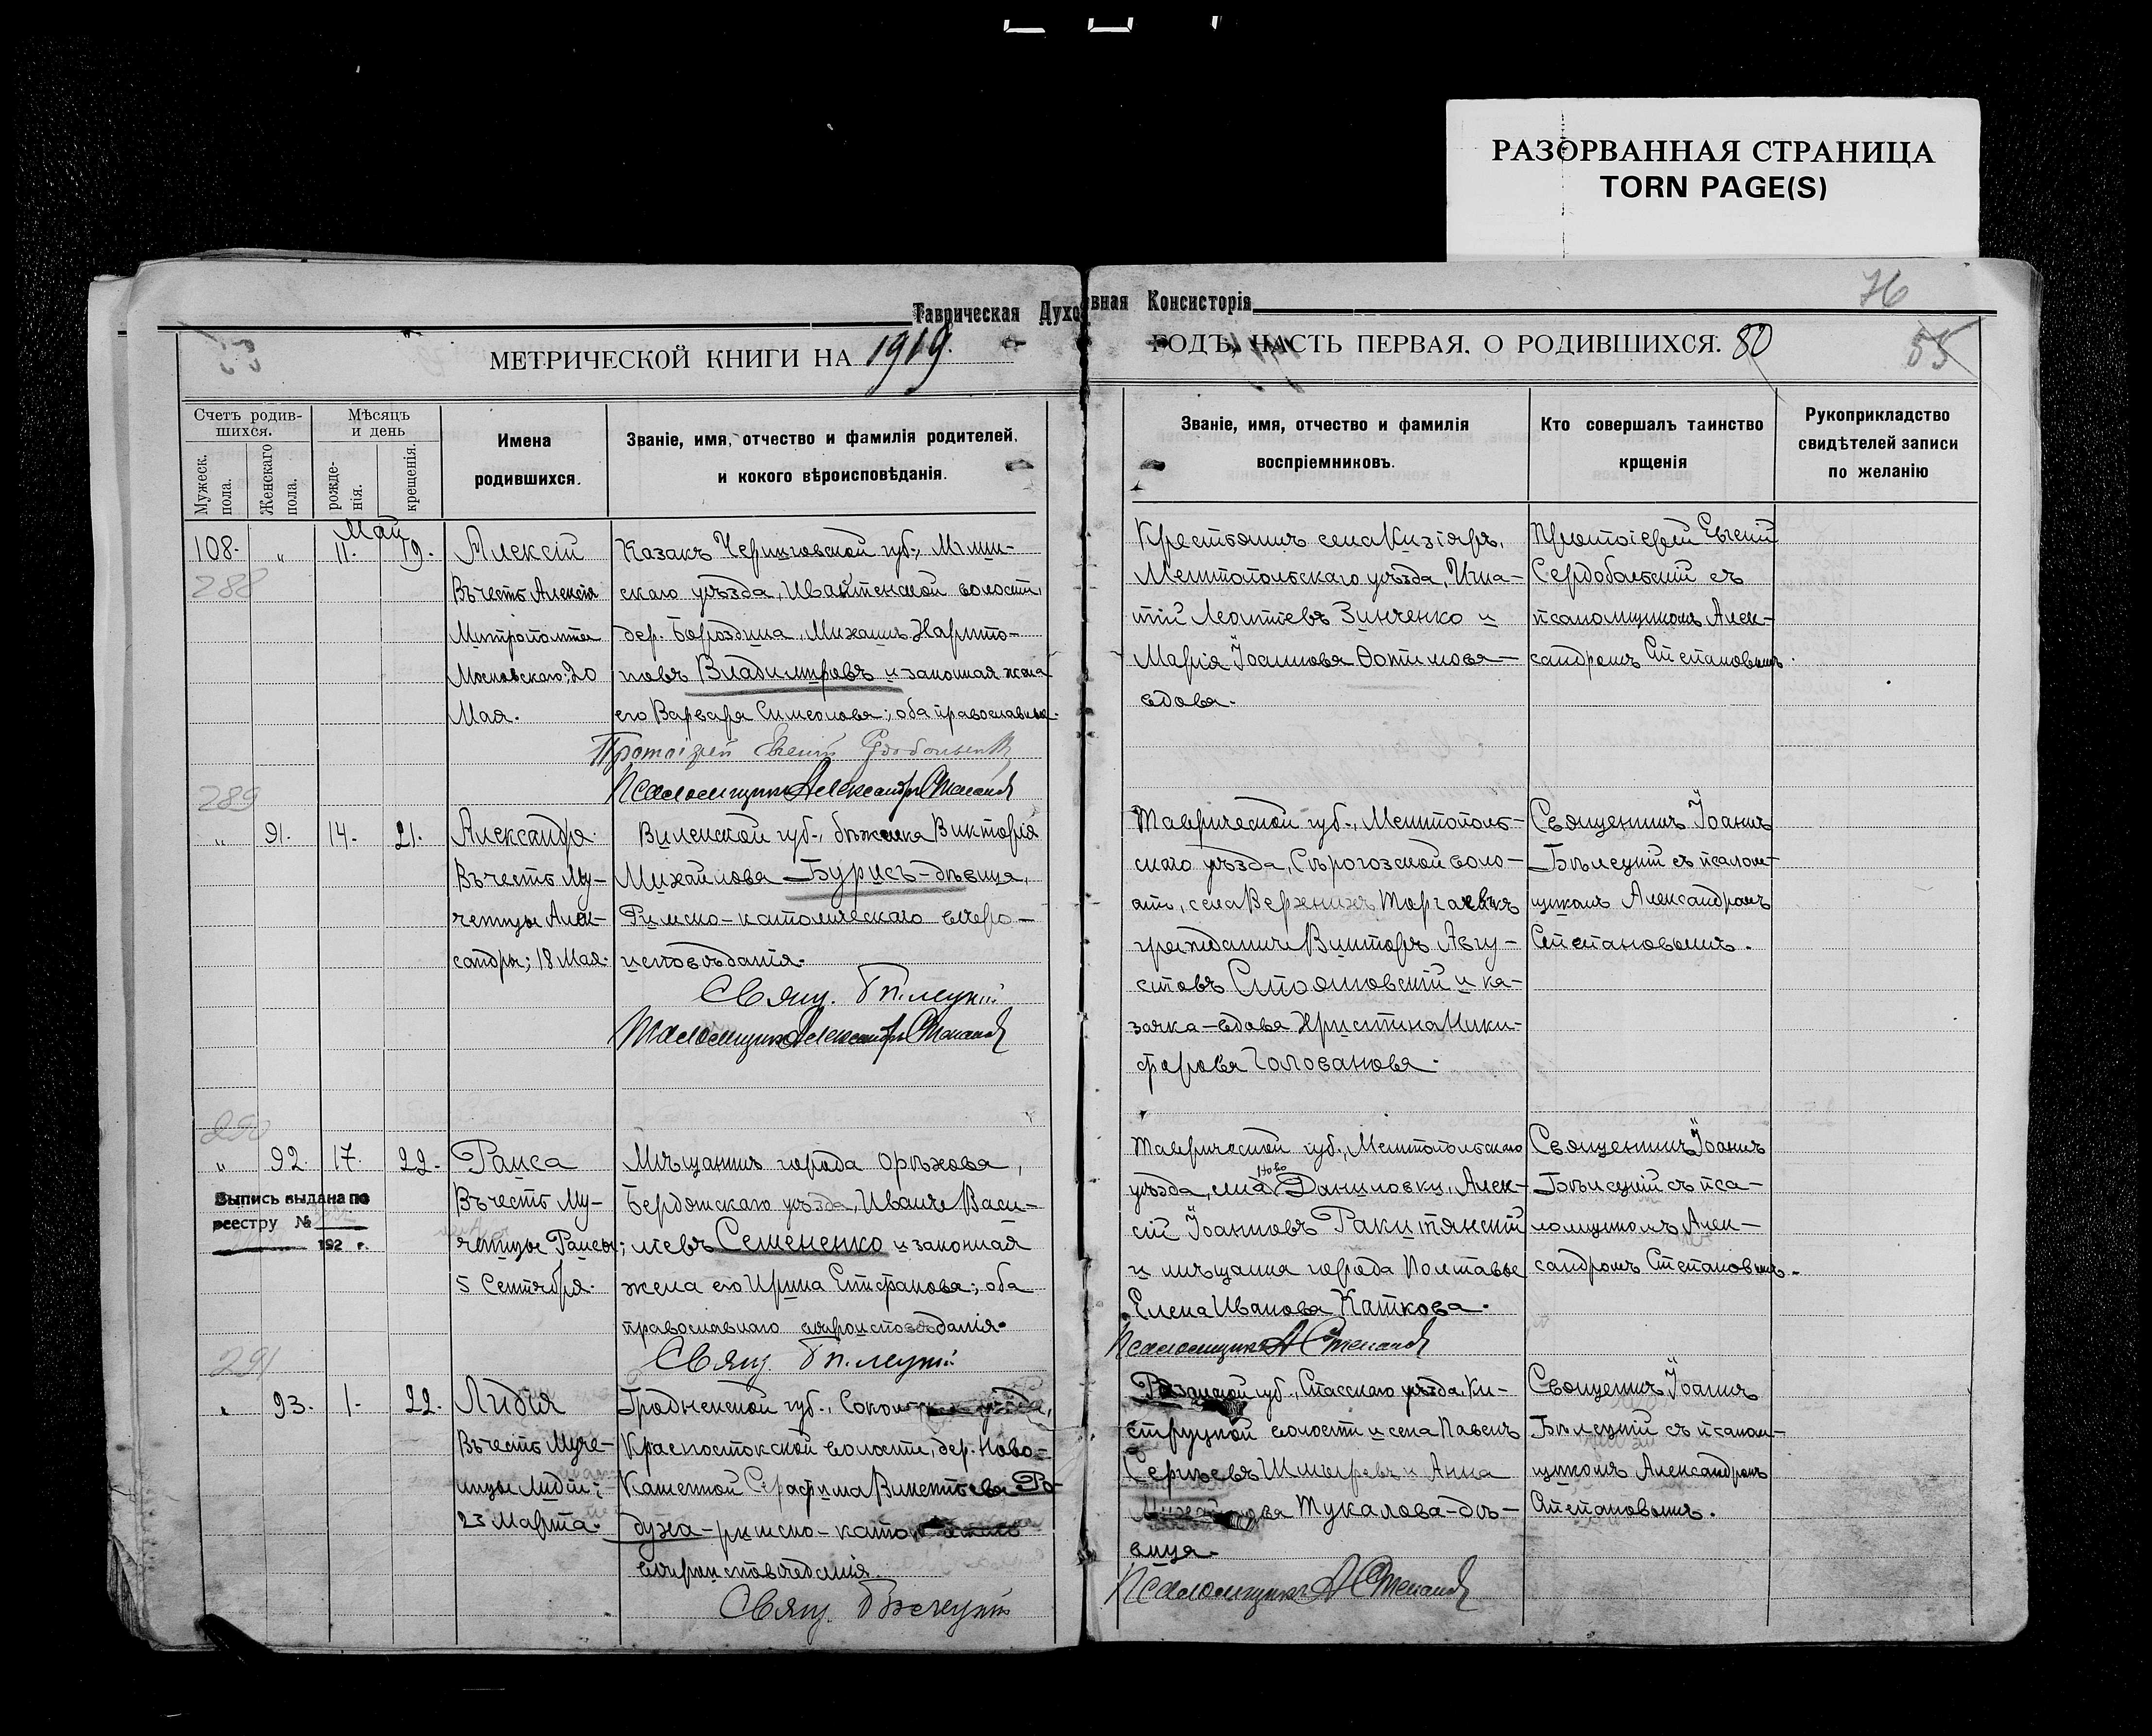 РАЗОРВАННАЯ СТРАНИЦА
TORN PAGE(S)
76
Таврическая Духовная Консисторія
МЕТРИЧЕСКОЙ КНИГИ НА 1919. ГОДЪ, ЧАСТЬ ПЕРВАЯ. О РОДИВШИХСЯ. 80
55
Счетъ родив-
шихся.
Мужеск.
пола.
Женскаго
пола.
Мѣсяцъ
и день
рожде-
нія.
крещенія.
Имена
родившихся.
Званіе, имя, отчество и фамилія родителей,
и кокого вѣроисповѣданія.
Званіе, имя, отчество и фамилія
воспріемниковъ.
Кто совершалъ таинство
крщенія
Рукоприкладство
свидѣтелей записи
по желанію
Май
108. " 11. 19.
288
Алексій
Въ честь Алексія
Митрополита
Московскаго; 20
Мая.
Казакъ Черниговской губ., Мглин-
скаго уѣзда, Ивайтенской волости,
дер. Бороздина, Михаилъ Харито-
новъ Владимировъ и законная жена
его Варвара Симеонова; оба православные.
Протоіерей Евгеній Сердобольскій
Псаломщикъ Александръ Степановъ
Крестьянинъ села Кизіяръ,
Мелитопольскаго уѣзда, Игна-
тій Леонтіевъ Зинченко и
Марія Іоаннова Фотимова-
вдова.
Протоіерей Евгеній
Сердобольскій съ
псаломщикомъ Алек-
сандромъ Степановымъ.
289
" 91. 14. 21.
Александра.
Въ честь Му-
ченицы Алек-
сандры; 18 Мая.
Виленской губ., бѣженка Викторія
Михайлова Бурисъ-дѣвица,
Римско-католическаго вѣро-
исповѣданія.
Свящ. Бѣлецкій
Псаломщикъ Александръ Степановъ
Таврической губ., Мелитополь-
скаго уѣзда, Сѣрогозской воло-
сти, села Верхнихъ Торгаевъ
гражданинъ Викторъ Авгу-
стовъ Стояновскій и ка-
зачка-вдова Христина Ники-
форова Голованова.
Священникъ Іоаннъ
Бѣлецкій съ псалом-
щикомъ Александромъ
Степановымъ.
290
" 92 17. 22.
Выпись выдана по
реестру №
192 г.
Раиса
Въ честь Му-
ченицы Раисы;
5 Сентября.
Мѣщанинъ города Орѣхова,
Бердянскаго уѣзда, Иванъ Васи-
ліевъ Семененко и законная
жена его Ирина Епифанова; оба
православнаго вѣроисповѣданія.
Свящ. Бѣлецкій
Таврической губ., Мелитопольскаго
уѣзда, села Ново Даниловки, Алек-
сій Іоанновъ Ракитянскій
и мѣщанка города Полтавы
Елена Иванова Каткова.
Псаломщикъ А Степановъ
Священникъ Іоаннъ
Бѣлецкій съ пса-
ломщикомъ Алек-
сандромъ Степановымъ.
291
" 93. 1. 22.
Лидія
Въ честь Муче-
ницы Лидіи;
23 Марта.
Гродненской губ., уѣзда,
Красностокской волости, дер. Ново-
Каменной Серафима Викентьева Ра-
духа-римско-
вѣроисповѣданія.
Свящ. Бѣлецкій
губ., Спасскаго уѣзда, Ки-
струцкой волости и села Павелъ
Сергѣевъ Шмыревъ и Анна
Тукалова-дѣ-
вица.
Псаломщикъ А Степановъ
Священникъ Іоаннъ
Бѣлецкій съ псалом-
щикомъ Александромъ
Степановымъ.